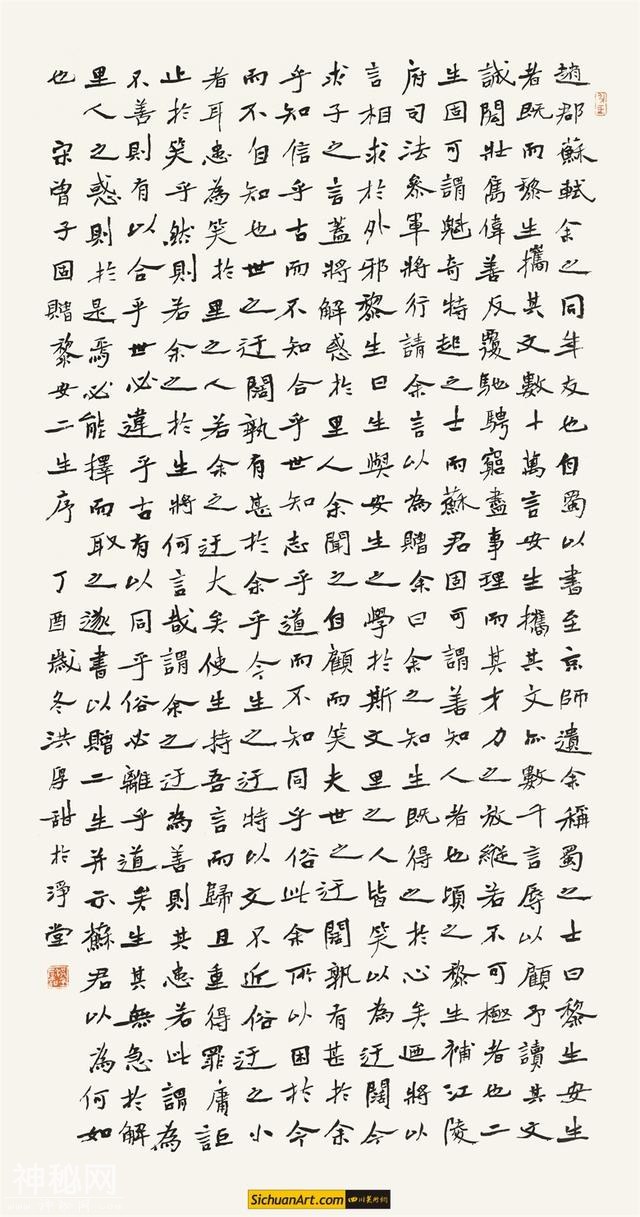 趙郡蘇軾余之同年友也自蜀以書至京師遺余稱蜀之士曰黎生安生
者既而黎生攜其文數十萬言安生攜其文亦數千言辱以顧予讀其文
誠閎壯雋偉善反覆馳騁窮盡事理而其才力之放縱若不可極者也二
生固可謂魁奇特起之士而蘇君固可謂善知人者也頃之黎生補江陵
府司法參軍將行請余言以為贈余曰余之知生既得之於心矣迺將以
言相求於外邪黎生曰生與安生之學於斯文里之人皆笑以為迂闊今
求子之言蓋將解惑於里人余聞之自顧而笑夫世之迂闊孰有甚於余
乎知信乎古而不知合乎世知志乎道而不知同乎俗此余所以困於今
而不自知也世之迂闊孰有甚於余乎今生之迂特以文不近俗迂之小
者耳患為笑於里之人若余之迂大矣使生持吾言而歸且重得罪庸詎
止於笑乎然則若余之於生將何言哉謂余之迂為善則其患若此謂為
不善則有以合乎世必違乎古有以同乎俗必離乎道矣生其無急於解
里人之惑則於是焉必能擇而取之遂書以贈二生并示蘇君以為何如
也 宋曾子固贈黎安二生序 丁酉歲冬洪厚甜於淨堂
神秘网
SichuanArt.com 四川美術網